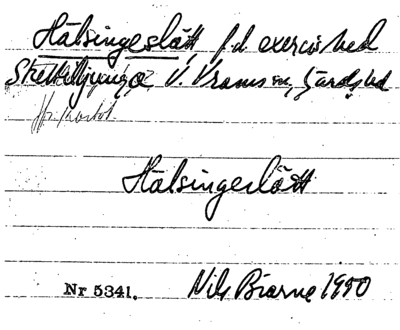 Hälsingeslätt f.d. exercished
Skättiljunga, V. Vrams sn, Gärds hd
Hälsingeslätt
Nr 5341. Nils Biarne 1950